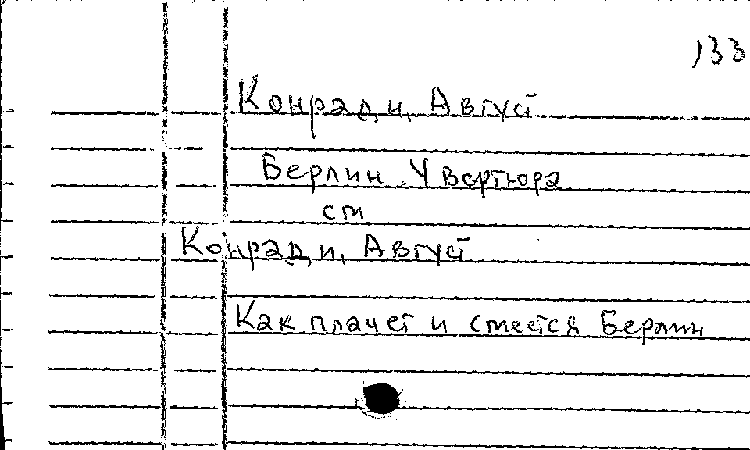 133
Конради, Август
Берлин. Увертюра
см.
Конради, Август
Как плачет и смеется Берлин